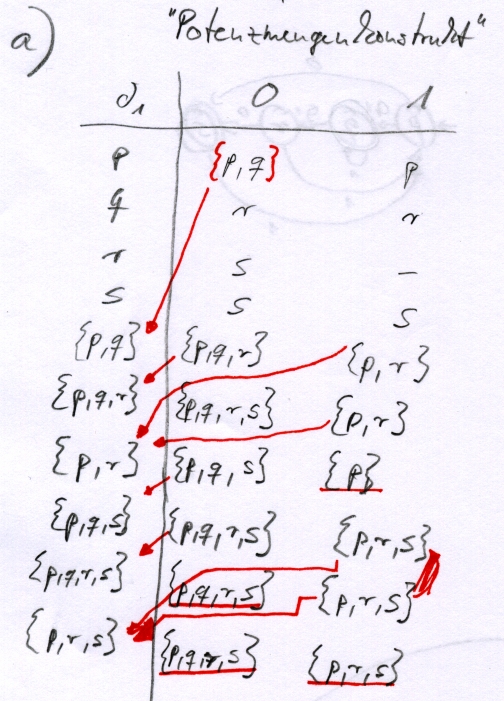 a) "Potenzmengenkonstrukt"
δ₁ 0 1
p {p,q} p
q r r
r s –
s s s
{p,q} {p,q,r} {p,r}
{p,q,r} {p,q,r,s} {p,r}
{p,r} {p,q,s} {p}
{p,q,s} {p,q,r,s} {p,r,s}
{p,q,r,s} {p,q,r,s} {p,r,s}
{p,r,s} {p,q,r,s} {p,r,s}